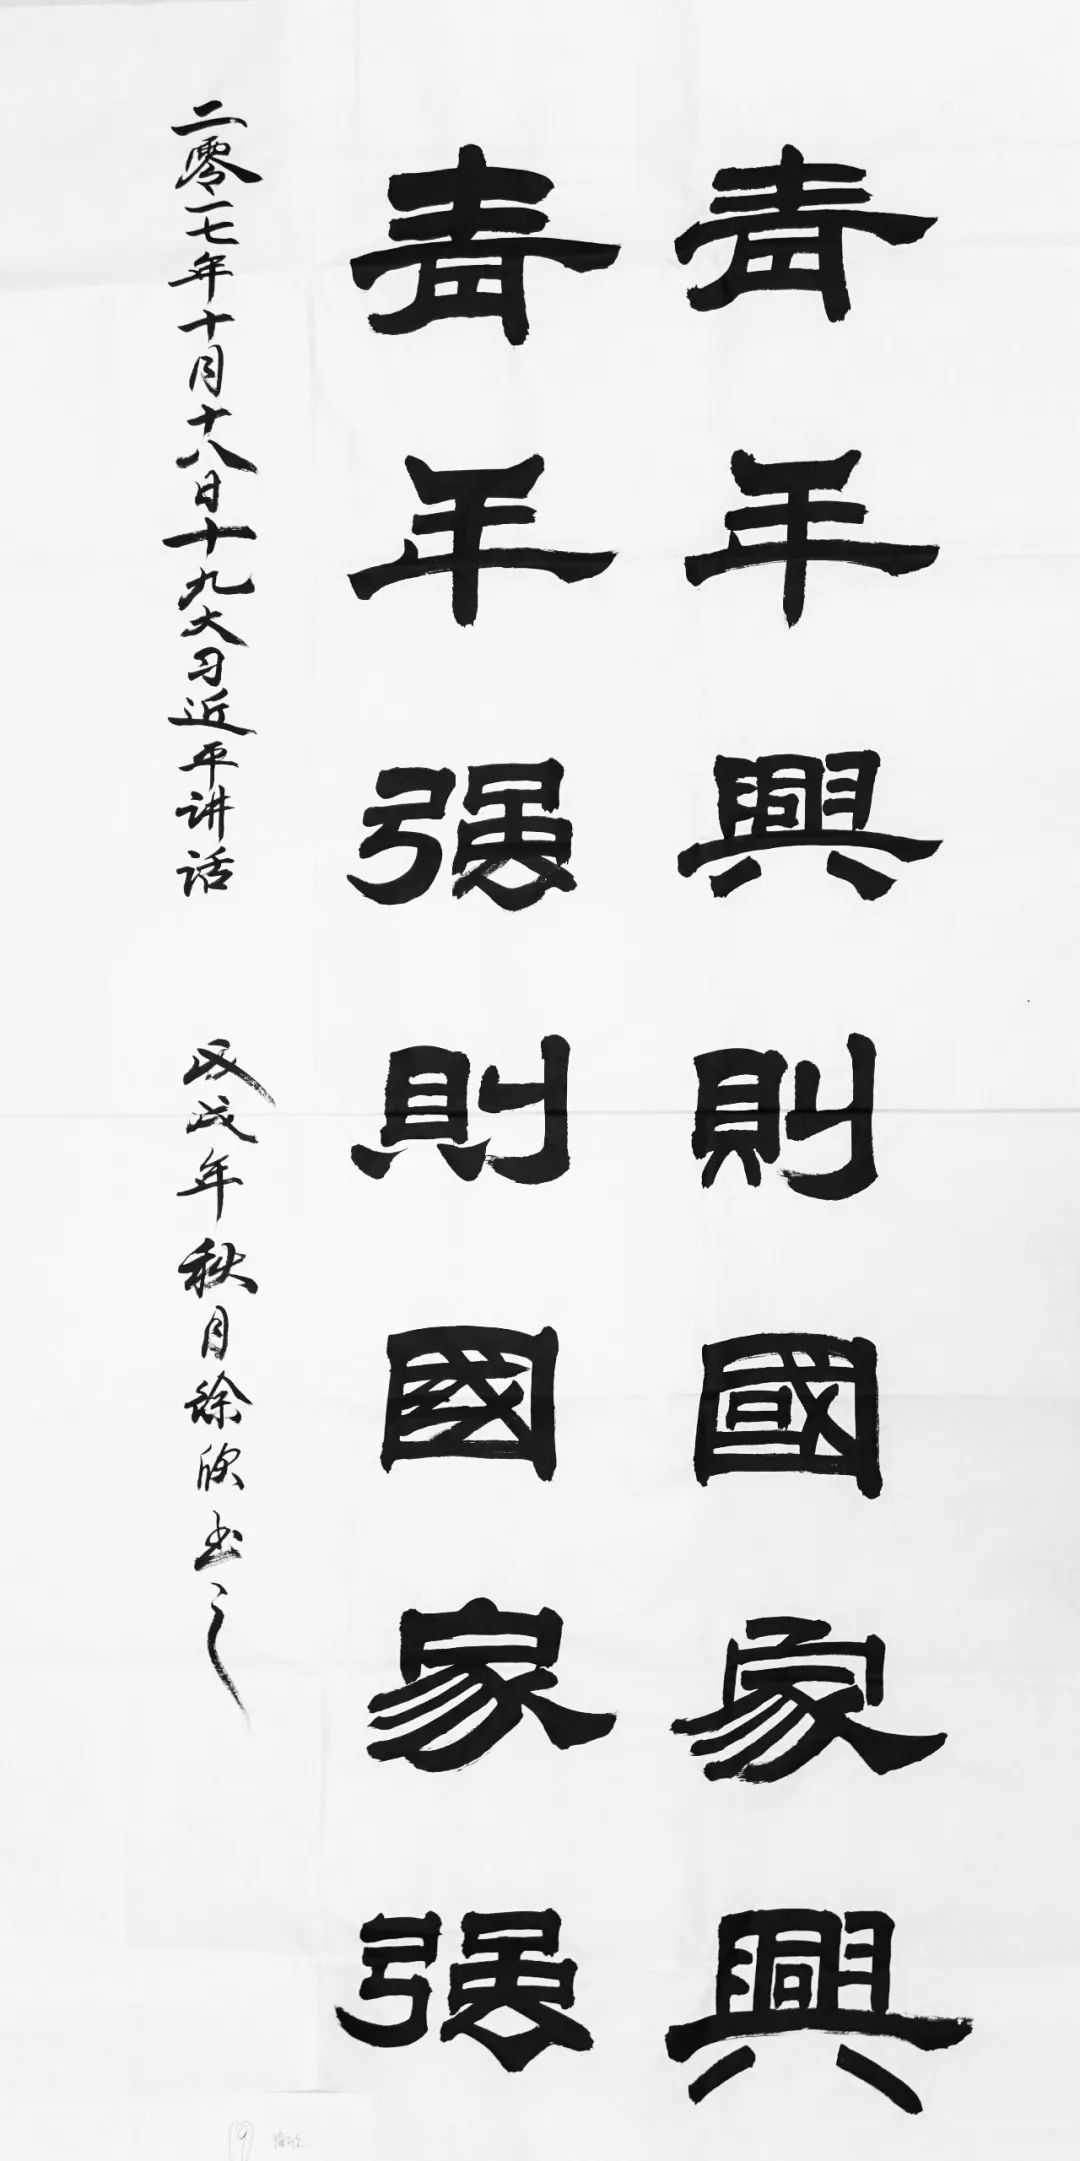 青年興則國家興
青年强則國家强
二零一七年十月十八日十九大习近平讲话 戊戌年秋月徐欣书之
9